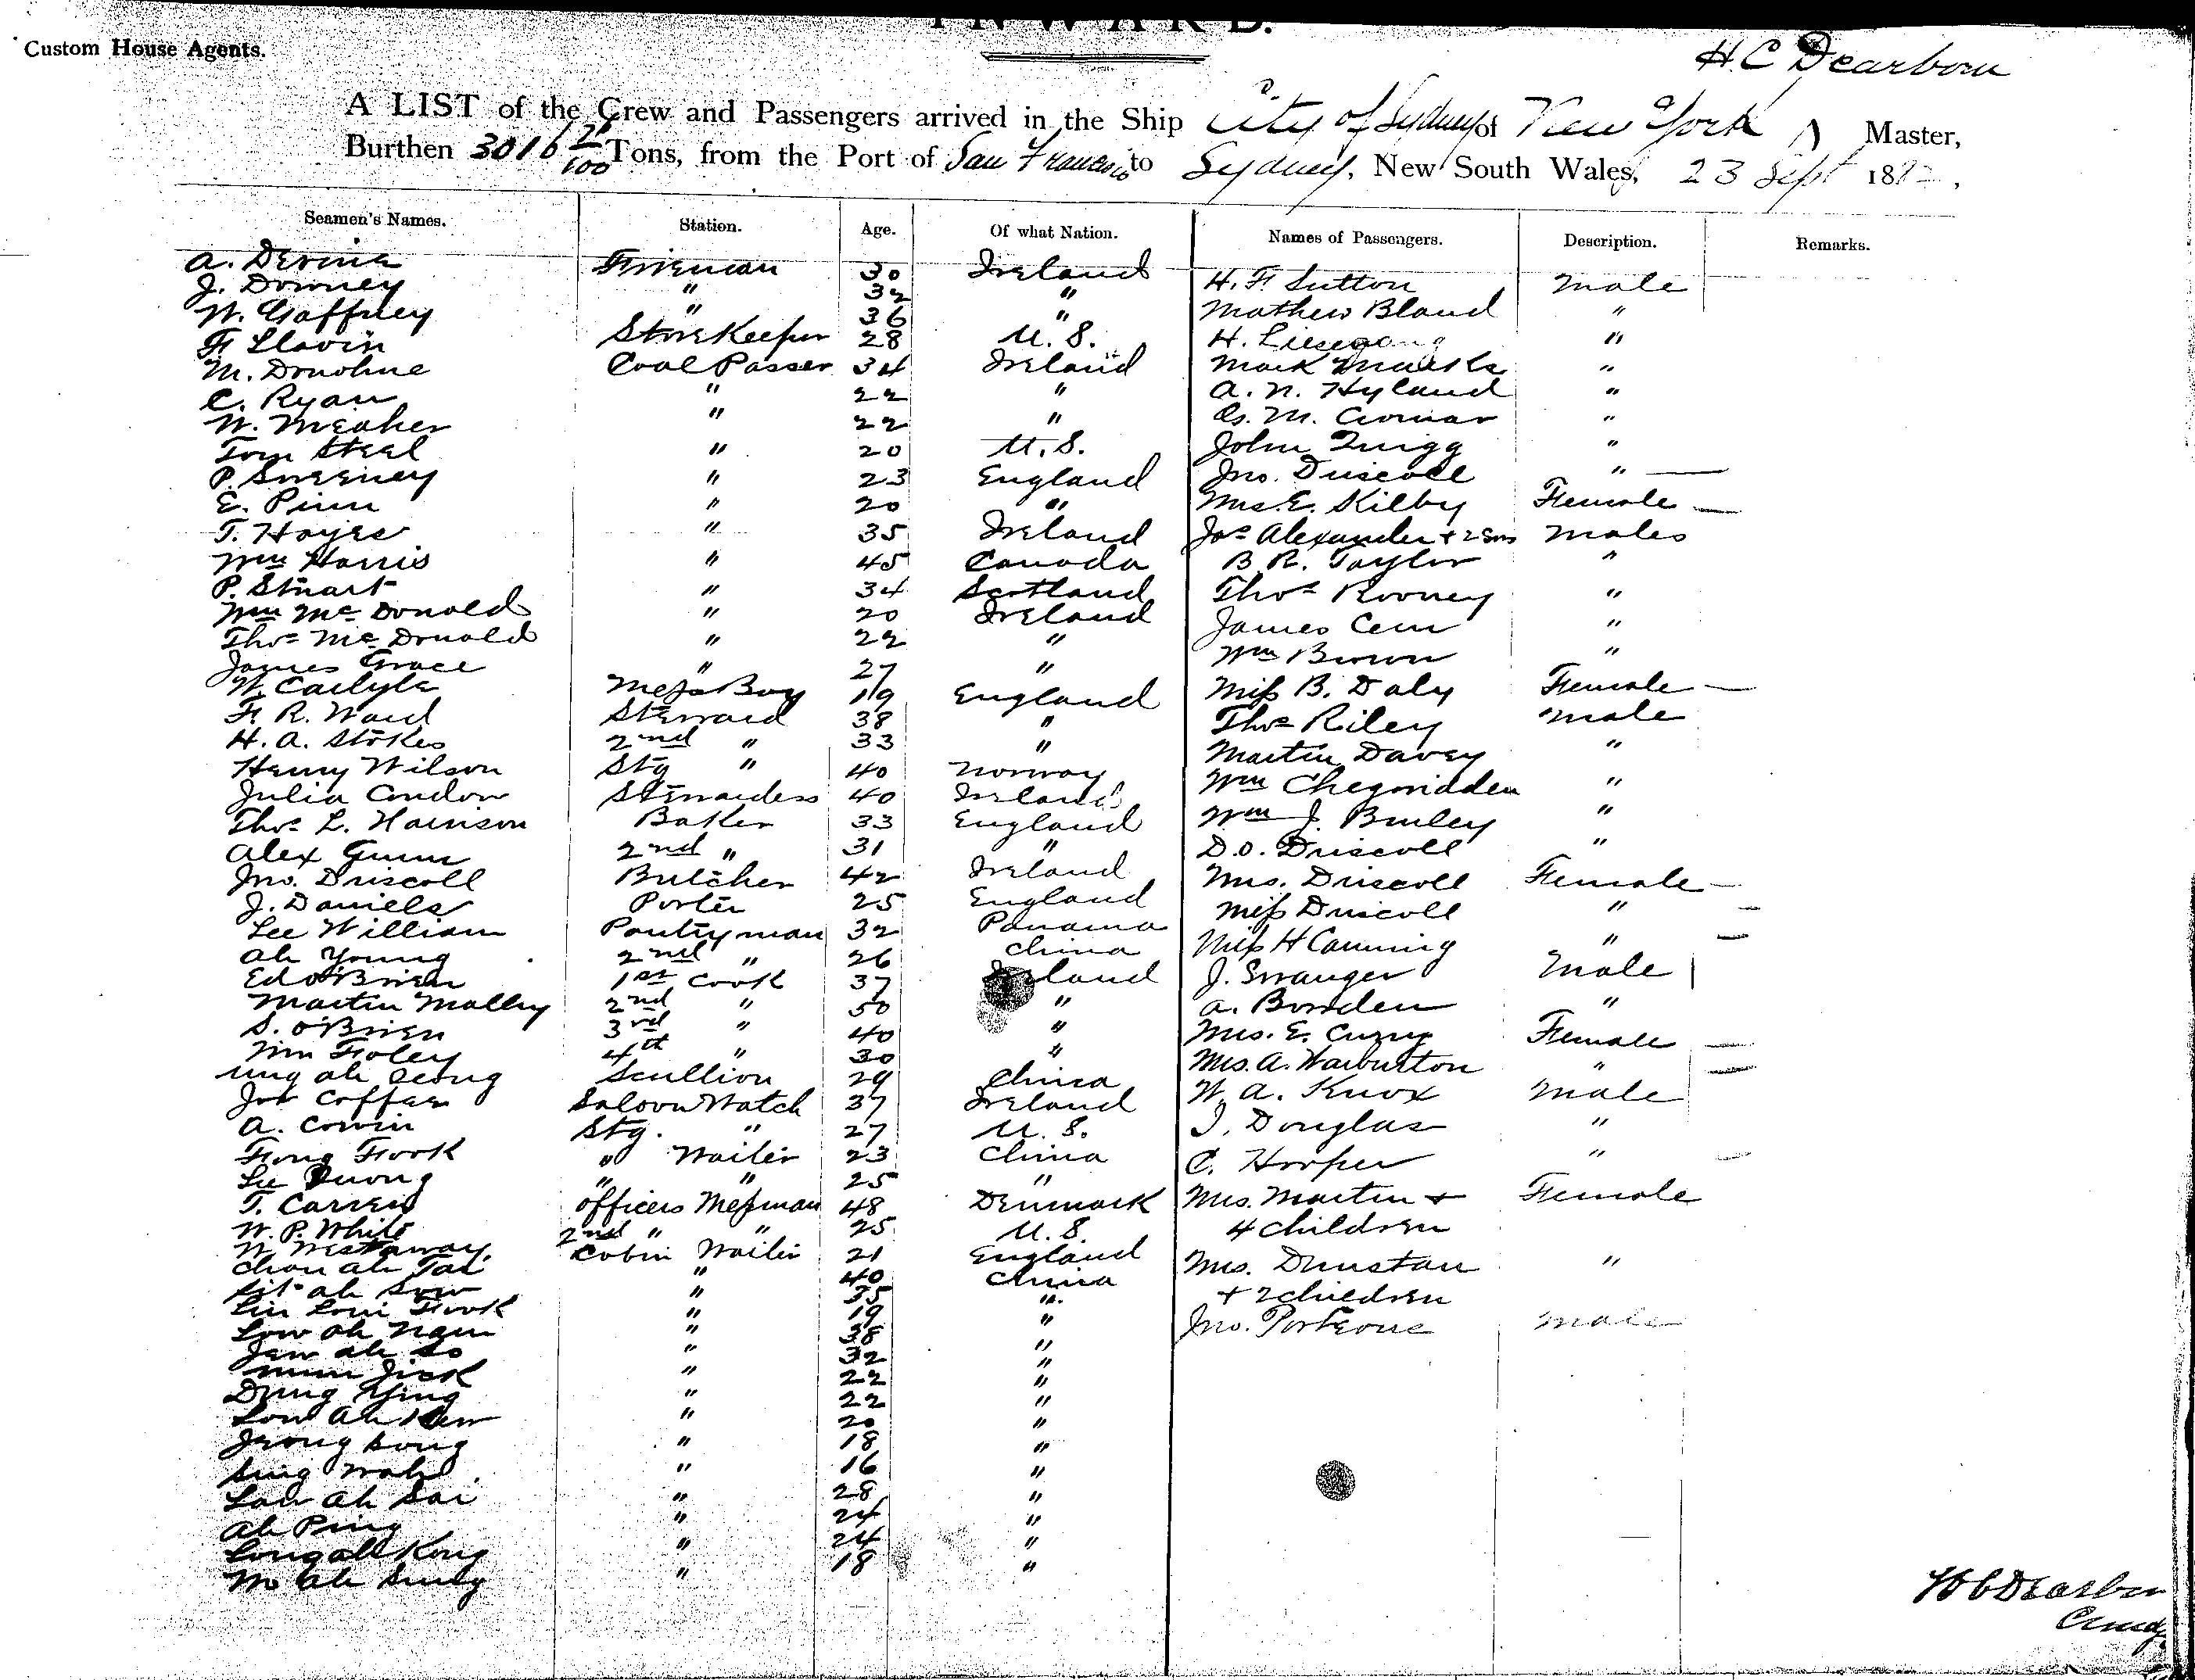 INWARD.
Custom House Agents.
H. C Dearborn
A LIST of the Crew and Passengers arrived in the Ship City of Sydney of New York Master,
Burthen 3016 Tons, from the Port of San Francisco to Sydney, New South Wales, 23 Sept 188
Seamen's Names. Station. Age. Of what Nation. Names of Passengers. Description. Remarks.
A. Devine Fireman 30 Ireland H. F. Sutton Male
J. Downey " 32 " Mathew Bland "
W. Gaffney " 36 " H. Liesegang "
F. Slavin StoreKeeper 28 U. S. Mark Marks "
M. Donohue Coal Passer 34 Ireland A. N. Hyland "
C. Ryan " 22 " M.
W. Meaher " 22 " John Quigg "
Tom Steel " 20 U. S. Jno. Driscoll "
P. Sweeney " 23 England Mrs. E. Kilby Female
E. Pinn " 20 " Jos Alexander + 2 Sons Males
T. Hayes " 35 Ireland B. R. Taylor "
Wm Harris " 45 Canada Thos Rooney "
P. Stuart " 34 Scotland James "
Wm McDonald " 20 Ireland Wm Brown "
Thos McDonald " 22 " Miss B. Daly Female
James Grace " 27 " Thos Riley Male
W. Carlyle Mess Boy 19 England Martin Davey "
F. R. Ward Steward 38 " Wm Chegwidden "
H. A. Stokes 2nd " 33 " Wm J. Burley "
Henry Wilson Stg " 40 Norway D. O. Driscoll "
Julia Condon Stewardess 40 Ireland Mrs. Driscoll Female
Thos L. Harrison Baker 33 England Miss Driscoll "
Alex Gunn 2nd " 31 " Miss H Canning "
Jno. Driscoll Butcher 42 Ireland J. Swanger Male
J. Daniels Porter 25 England A. Bowden "
Lee William Pantryman 32 Panama Mrs. E. Curry Female
Ah Young 2nd " 26 China Mrs. A. Warburton "
Ed O'Brien 1st Cook 37 Ireland W. A. Knox Male
Martin Malley 2nd " 50 " J. Douglas "
S. O'Brien 3rd " 40 " C. Hooper "
Wm Foley 4th " 30 " Mrs. Martin + Female
Ung Ah Scullion 29 China 4 children
Coffee Saloon Watch 37 Ireland Mrs. Dunstan "
A. Cowin Stg. " 27 U. S. + 2 children
Fong Fook " Waiter 23 China Jno. Porteous Male
Lee Quong " " 25 "
T. Officers Messman 48 Denmark
W. P. White 2nd " " 25 U. S.
W. Westaway Cabin Waiter 21 England
Chou Ah Tai " 40 China
Ah Sow " 35 "
Lin Loui Fook " 19 "
Low Ah Nam " 38 "
Jew Ah So " 32 "
Jick " 22 "
Dung Ying " 22 "
Low Ah " 20 "
Jeong Bong " 18 "
Sing Wah " 16 "
Law Ah Sai " 28 "
Ah Ping " 24 "
Kong " 24 "
Ah Sung " 18 "
H C Dearborn